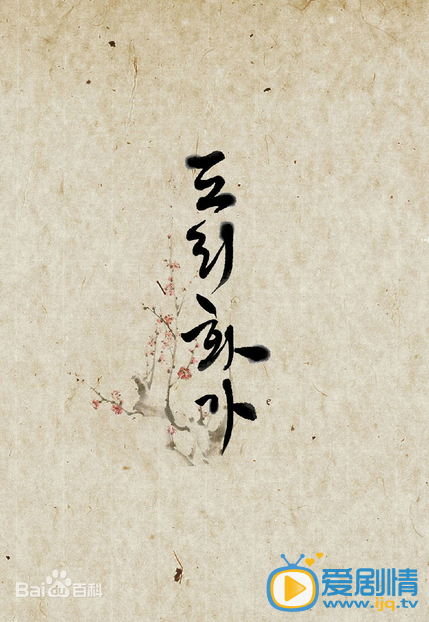 도리화가
Bai du 百科
爱剧情
www.ijq.tv